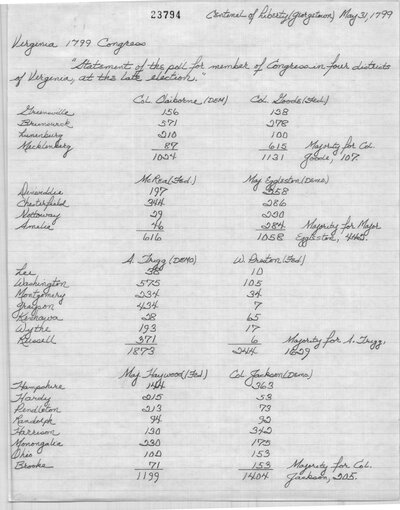 23794 Centinel of Liberty (Georgetown) May 31, 1799
Virginia 1799 Congress
"Statement of the poll for member of Congress in four districts
of Virginia, at the late election."
Col. Claiborne (DEM) Col. Goode (Fed.)
Greensville 156 138
Brunswick 571 278
Lunenburg 210 100
Mecklenberg 87 615 Majority for Col.
1024 1131 Goode, 107
McRea (Fed.) Maj Eggleston (Demo)
Dinwiddie 197 258
Chesterfield 344 286
Nottoway 29 230
Amelia 46 284 Majority for Major
616 1058 Eggleston, 442.
A. Trigg (DEMO) W. Preston (Fed.)
Lee 38 10
Washington 575 105
Montgomery 234 34
Grayson 434 7
Kenhawa 28 65
Wythe 193 17
Russell 371 6 Majority for A. Trigg.
1873 244 1629
Maj Haywood (Fed.) Col Jackson (Demo)
Hampshire 144 363
Hardy 215 53
Pendleton 213 73
Randolph 94 92
Harrison 130 342
Monongalia 230 175
Ohio 102 153
Brooke 71 153 Majority for Col.
1199 1404 Jackson, 205.